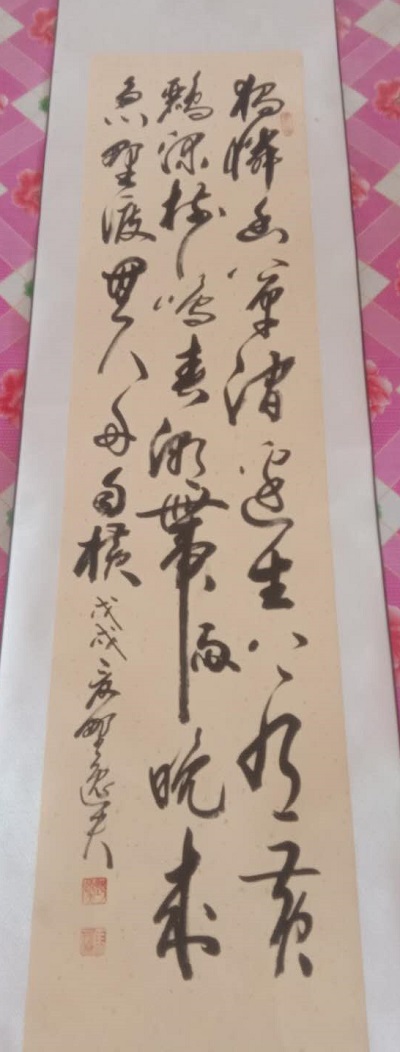 獨憐幽草澗邊生上有黄
鸝深樹鳴春潮帶雨晚來
急野渡無人舟自横 戊戌